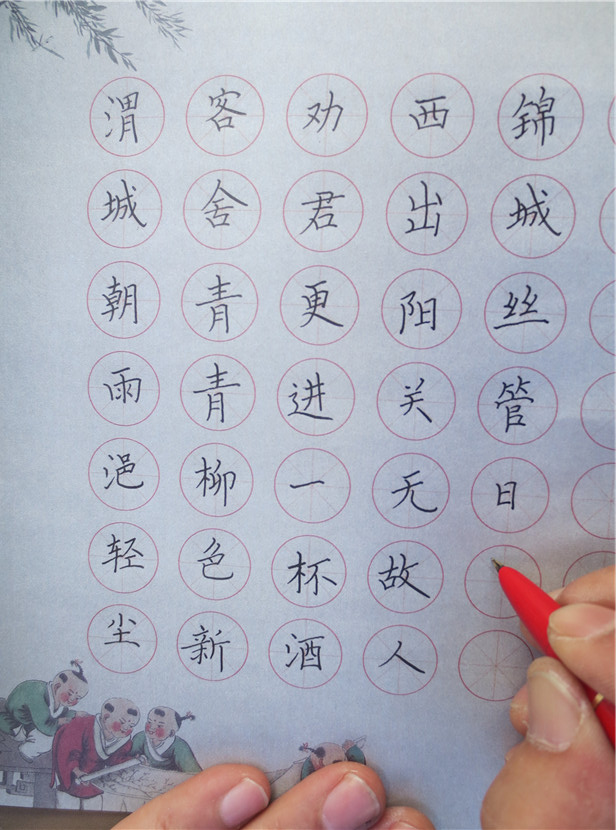 渭城朝雨浥轻尘
客舍青青柳色新
劝君更进一杯酒
西出阳关无故人
锦城丝管日